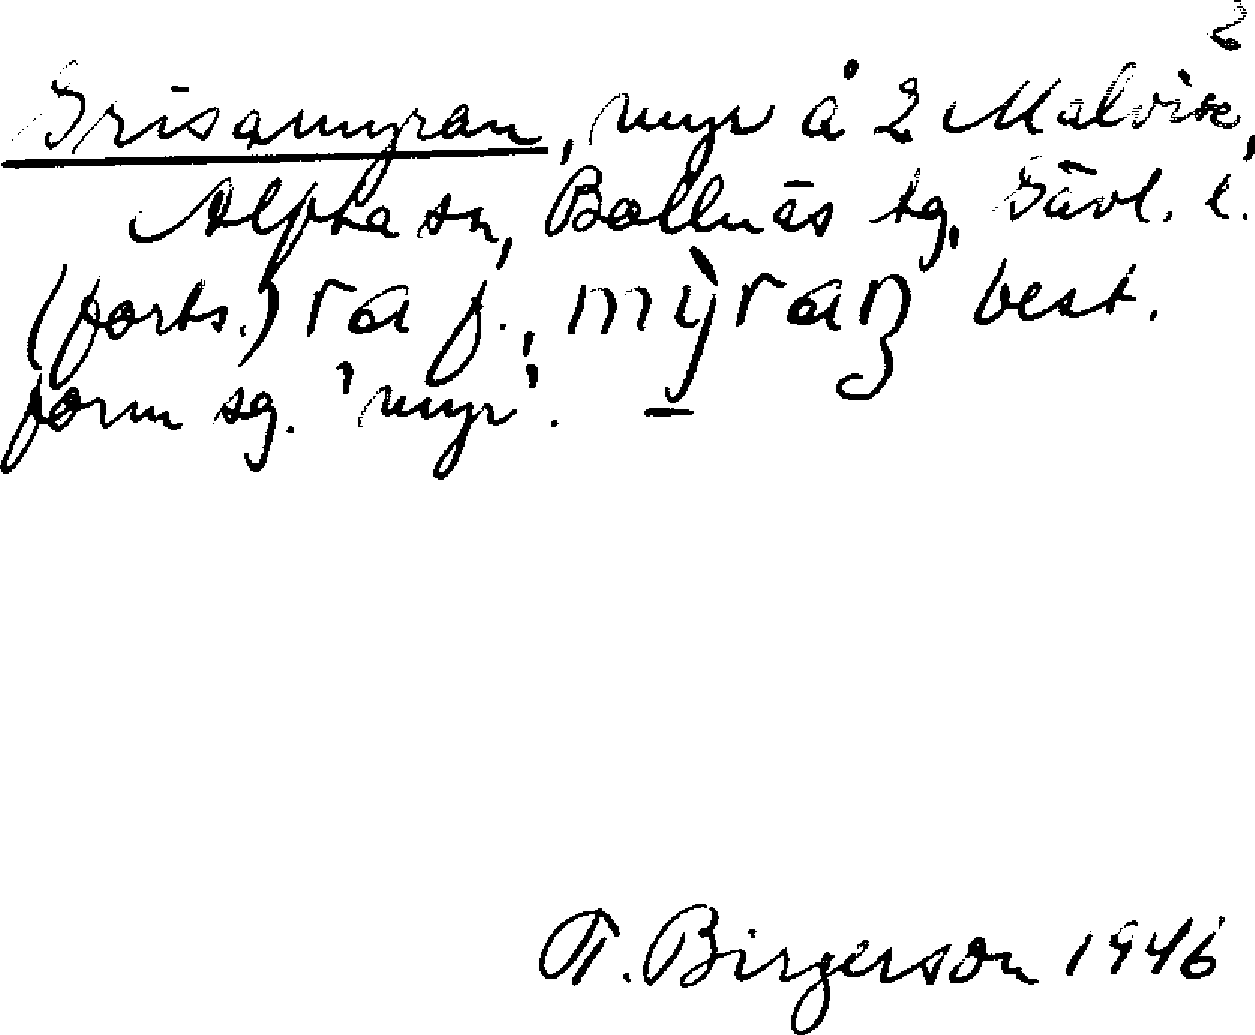 2
Grisamyran, myr å 2 Malvik,
Alfta sn, Bollnäs tg, Gävl. l.
(forts.) ra f., mỳraŋ best.
form sg. 'myr'. —
T. Birgerson 1946